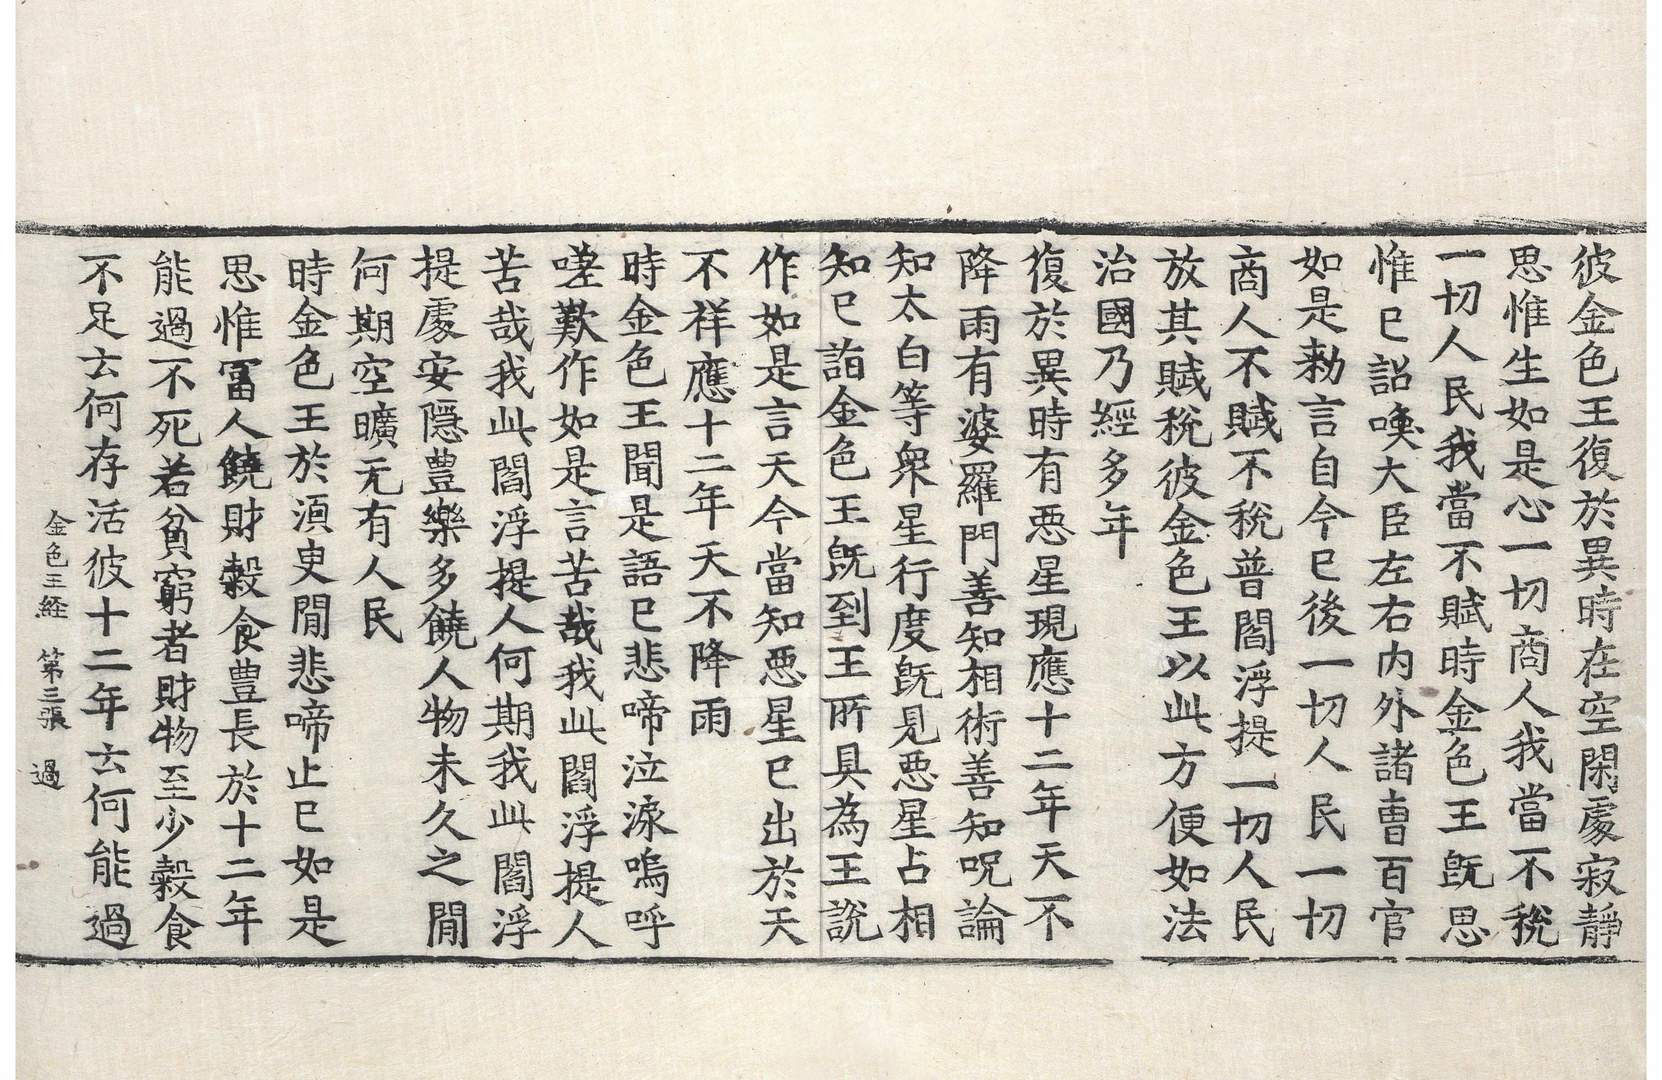 彼金色王復於異時在空閑處寂靜
思惟生如是心一切商人我當不稅
一切人民我當不賦時金色王旣思
惟已詔喚大臣左右內外諸曺百官
如是勑言自今已後一切人民一切
商人不賦不稅普閻浮提一切人民
放其賦稅彼金色王以此方便如法
治國乃經多年
復於異時有惡星現應十二年天不
降雨有婆羅門善知相術善知呪論
知太白等衆星行度旣見惡星占相
知已詣金色王旣到王所具為王說
作如是言天今當知惡星已出於天
不祥應十二年天不降雨
時金色王聞是語已悲啼泣淚嗚呼
嗟歎作如是言苦哉我此閻浮提人
苦哉我此閻浮提人何期我此閻浮
提處安隱豊樂多饒人物未久之閒
何期空曠无有人民
時金色王於湏臾閒悲啼止已如是
思惟冨人饒財穀食豊長於十二年
能過不死若貧窮者財物至少穀食
不足云何存活彼十二年云何能過
金色王経 第三張 過